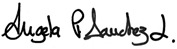 Angela P. Sanchez L.